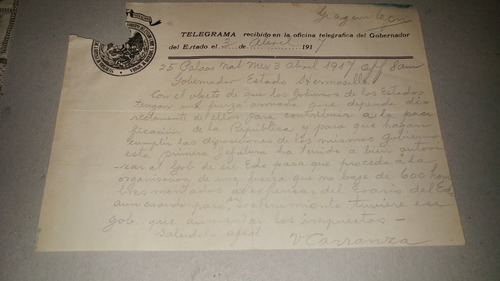 TELEGRAMA recibido en la oficina telegráfica del Gobernador
del Estado el 3 de Abril 191
25 Palacio Nal Mex 3 abril 1917
Gobernador Estado Hermosillo
Con el objeto de que los Gobiernos de los Estados
tengan una fuerza armada que dependa di-
rectamente de ellos para contribuir a la paci-
ficación de la República y para que hagan
cumplir las disposiciones de los mismos Gobiernos
esta primera jefatura ha tenido a bien autori-
zar al Gob de ese Edo para que proceda a la
organización de una fuerza que no baje de 600 hom
bres montados a expensas del Erario del Edo
aun cuando para su sostenimiento tuviere ese
Gob. que aumentar los impuestos —
Salúdolo afte
V Carranza